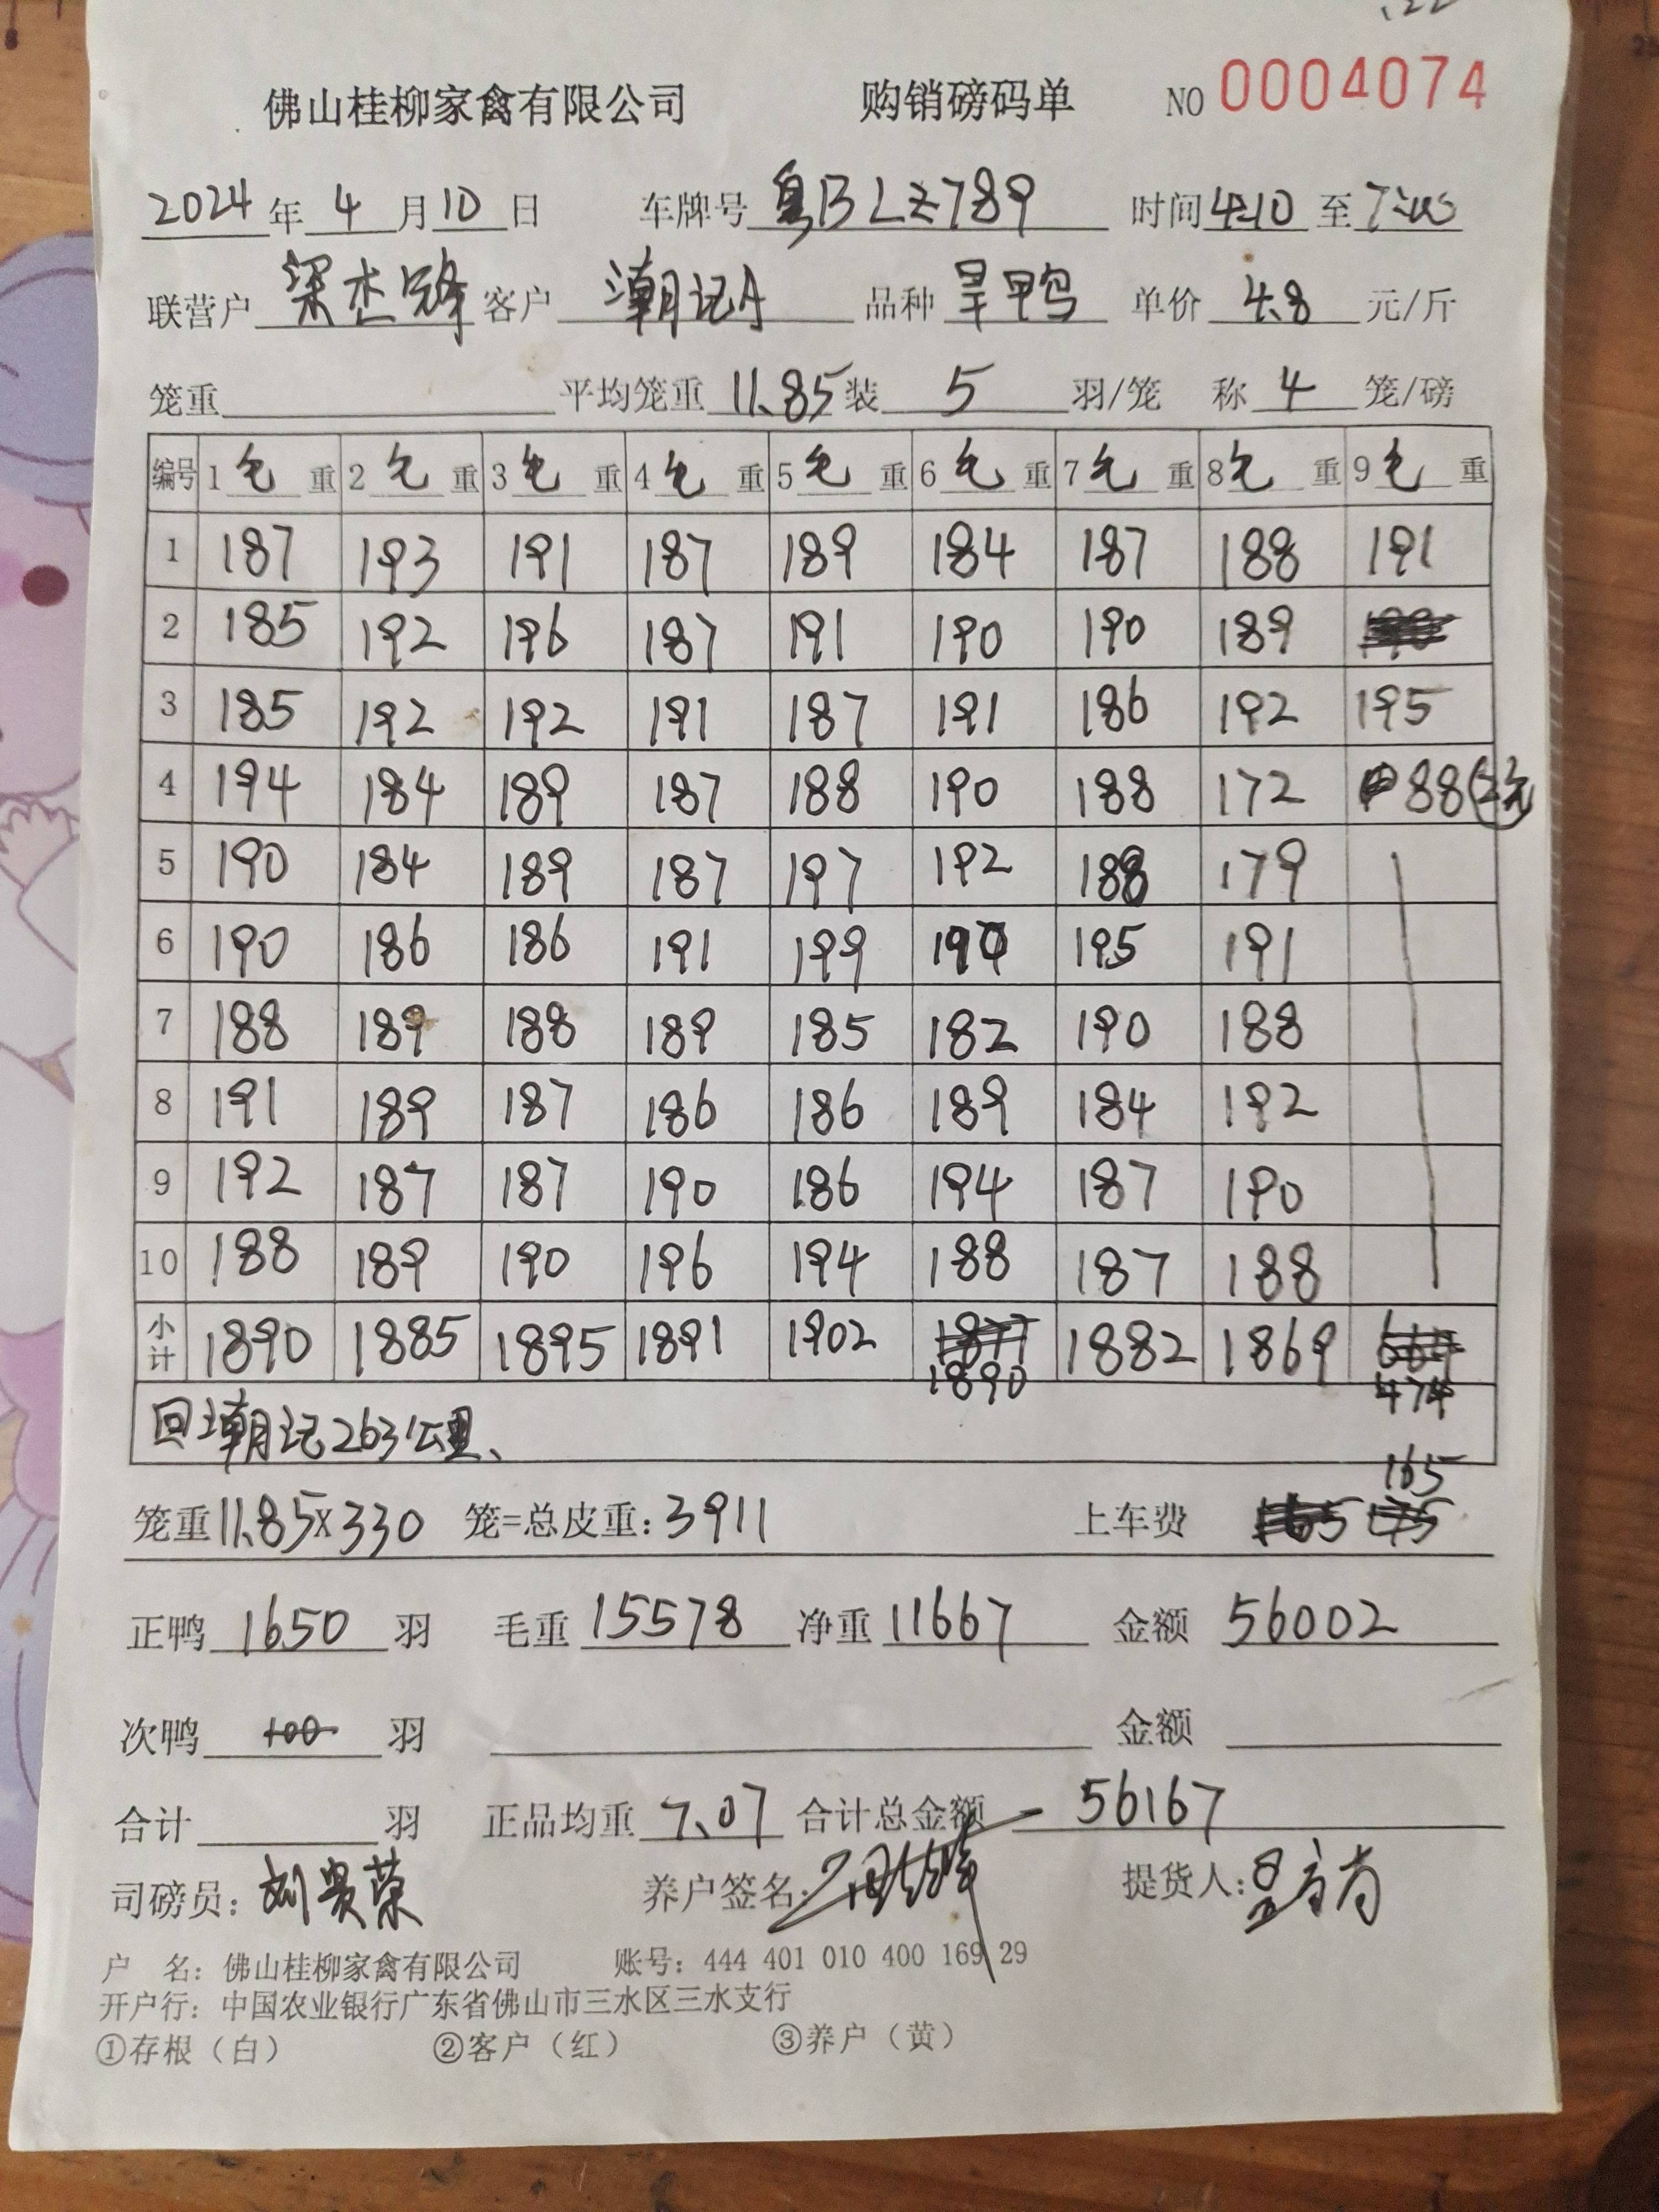 佛山桂柳家禽有限公司 购销磅码单 NO 0004074
2024 年 4 月 10 日 车牌号 粤BLZ789 时间 4:10 至
联营户 梁杰锋 客户 潮记A 品种 旱鸭 单价 4.8 元/斤
笼重 平均笼重 11.85 装 5 羽/笼 称 4 笼/磅
编号 1 毛 重 2 毛 重 3 毛 重 4 毛 重 5 毛 重 6 毛 重 7 毛 重 8 毛 重 9 毛 重
1 187 193 191 187 189 184 187 188 191
2 185 192 196 187 191 190 190 189
3 185 192 192 191 187 191 186 192 195
4 194 184 189 187 188 190 188 172 88
5 190 184 189 187 197 192 188 179
6 190 186 186 191 199 190 195 191
7 188 189 188 189 185 182 190 188
8 191 189 187 186 186 189 184 192
9 192 187 187 190 186 194 187 190
10 188 189 190 196 194 188 187 188
小计 1890 1885 1895 1891 1902 1877 1882 1869
1890 474
回潮记263公里、
165
笼重 11.85×330 笼=总皮重: 3911 上车费
正鸭 1650 羽 毛重 15578 净重 11667 金额 56002
次鸭 100 羽 金额
合计 羽 正品均重 7.07 合计总金额 56167
司磅员: 刘贵荣 养户签名: 提货人:
户 名: 佛山桂柳家禽有限公司 账号: 444 401 010 400 169 29
开户行: 中国农业银行广东省佛山市三水区三水支行
①存根（白） ②客户（红） ③养户（黄）